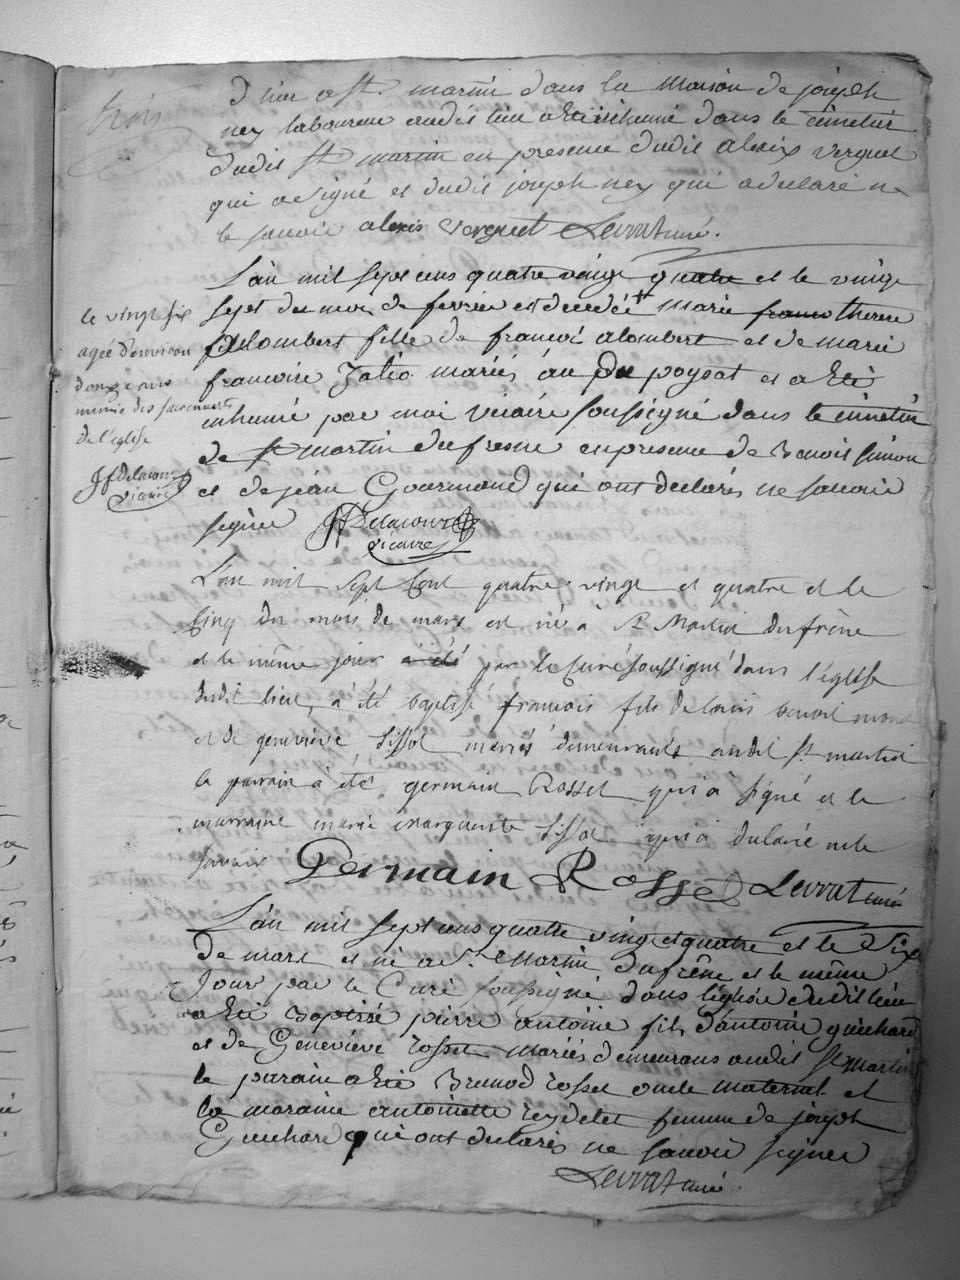 trois
d'hier a st martin dans la maison de joseph
ney laboureur audit lieu a eté inhumé dans le cimetier
dudit st martin en presence dudit alexix verguet
qui a signé et dudit joseph ney qui a declaré ne
le savoir alexis Verguet Levrat curé.
L'an mil sept cens quatre vingt quatre et le vingt
sept du mois de fevrier est decedée marie therese
alombert fille de francoi alombert et de marie
francoise Jalio mariés au poysat et a eté
inhumé par moi vicaire soussigné dans le cimetier
de st martin dufresne en presence de Benoit simon
et de jean Gourmand qui ont declarés ne savoir
signer JF Delacour
vicaire
le vingt six
agée d'environ
donze ans
munie des sacrements
de l'église
JF Delacour
vicaire
L'an mil sept Cent quatre vingt et quatre et le
Cinq du mois de mars est né à St Martin dufrêne
et le même jour a été par le Curé soussigné dans l'église
dudit lieu, a été baptisé francois fils de louis benoit
et de geneviève Tissot mariés demeurants audit St martin
le parrain a été germain Rosset qui a signé et le
marraine marie marguerite Tissot qui a declaré ne le
savoir Germain Rosset Levrat curé
L'an mil sept cens quatre vingt et quatre et le Six
de mars est né a St Martin dufrêne et le même
Jour par le Curé soussigné dans l'église dudit lieu
a eté Baptisé pierre antoine fils d'antoine guichard
et de Geneviève rosset mariés demeurans audit St Martin
le parain a eté Brunod rosset oncle maternel et
la maraine antoinette reydelet femme de joseph
Guichard qui ont declarés ne savoir signer
Levrat curé.